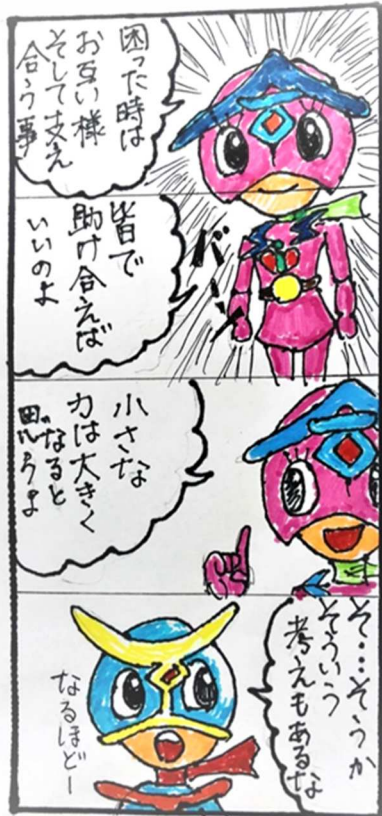 困った時は
お互い様
そして支え
合う事
皆で
助け合えば
いいのよ
バーン
小さな
力は大きく
なると
思うよ
そ…そうか
そういう
考えもあるな
なるほどー